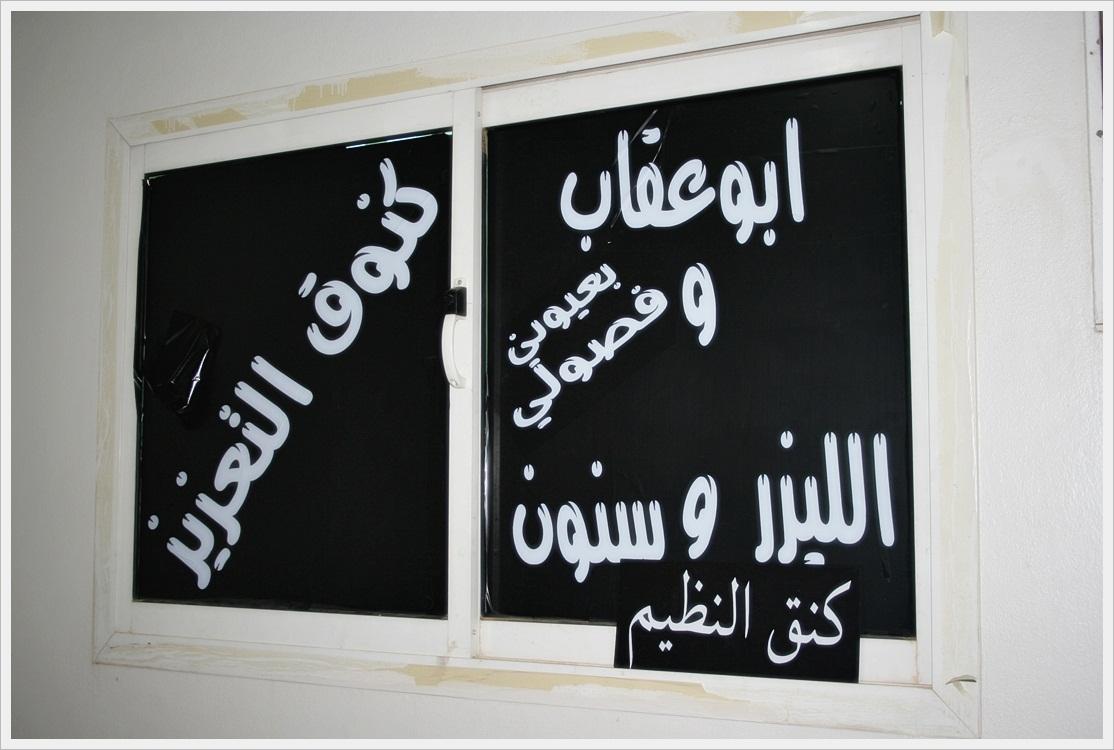 ابوعفاب
و
بعيوني
فصولي
الليزر و سنون
كنق النظيم
كنوق التعزيز